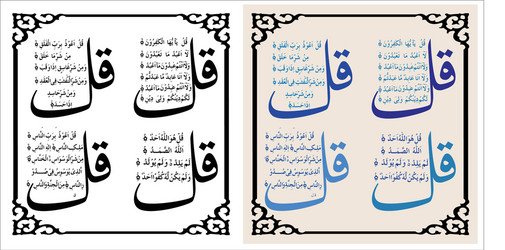 قل
قُلْ يٰٓاَيُّهَا الْكٰفِرُوْنَ
لَآ اَعْبُدُ مَا تَعْبُدُوْنَ
وَلَآ اَنْتُمْ عٰبِدُوْنَ مَآ اَعْبُدُ
وَلَآ اَنَا عَابِدٌ مَّا عَبَدْتُّمْ
وَلَآ اَنْتُمْ عٰبِدُوْنَ مَآ اَعْبُدُ
لَكُمْ دِيْنُكُمْ وَلِيَ دِيْنِ
قل
قُلْ اَعُوْذُ بِرَبِّ الْفَلَقِ
مِنْ شَرِّ مَا خَلَقَ
وَمِنْ شَرِّ غَاسِقٍ اِذَا وَقَبَ
وَمِنْ شَرِّ النَّفّٰثٰتِ فِي الْعُقَدِ
وَمِنْ شَرِّ حَاسِدٍ
اِذَا حَسَدَ
قل
قُلْ هُوَ اللّٰهُ اَحَدٌ
اَللّٰهُ الصَّمَدُ
لَمْ يَلِدْ وَلَمْ يُوْلَدْ
وَلَمْ يَكُنْ لَّهٗ كُفُوًا اَحَدٌ
قل
قُلْ اَعُوْذُ بِرَبِّ النَّاسِ
مَلِكِ النَّاسِ اِلٰهِ النَّاسِ
مِنْ شَرِّ الْوَسْوَاسِ الْخَنَّاسِ
الَّذِيْ يُوَسْوِسُ فِيْ صُدُوْرِ
النَّاسِ مِنَ الْجِنَّةِ وَالنَّاسِ
قل
قُلْ يٰٓاَيُّهَا الْكٰفِرُوْنَ
لَآ اَعْبُدُ مَا تَعْبُدُوْنَ
وَلَآ اَنْتُمْ عٰبِدُوْنَ مَآ اَعْبُدُ
وَلَآ اَنَا عَابِدٌ مَّا عَبَدْتُّمْ
وَلَآ اَنْتُمْ عٰبِدُوْنَ مَآ اَعْبُدُ
لَكُمْ دِيْنُكُمْ وَلِيَ دِيْنِ
قل
قُلْ اَعُوْذُ بِرَبِّ الْفَلَقِ
مِنْ شَرِّ مَا خَلَقَ
وَمِنْ شَرِّ غَاسِقٍ اِذَا وَقَبَ
وَمِنْ شَرِّ النَّفّٰثٰتِ فِي الْعُقَدِ
وَمِنْ شَرِّ حَاسِدٍ
اِذَا حَسَدَ
قل
قُلْ هُوَ اللّٰهُ اَحَدٌ
اَللّٰهُ الصَّمَدُ
لَمْ يَلِدْ وَلَمْ يُوْلَدْ
وَلَمْ يَكُنْ لَّهٗ كُفُوًا اَحَدٌ
قل
قُلْ اَعُوْذُ بِرَبِّ النَّاسِ
مَلِكِ النَّاسِ اِلٰهِ النَّاسِ
مِنْ شَرِّ الْوَسْوَاسِ الْخَنَّاسِ
الَّذِيْ يُوَسْوِسُ فِيْ صُدُوْرِ
النَّاسِ مِنَ الْجِنَّةِ وَالنَّاسِ